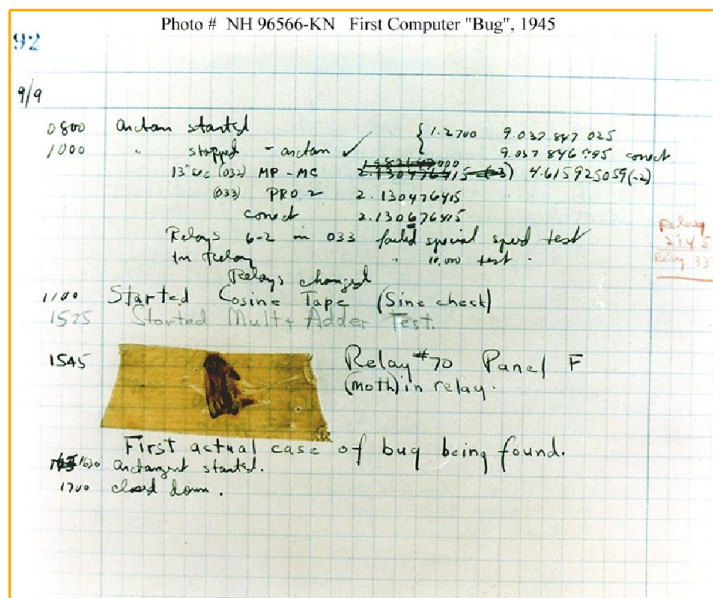 Photo # NH 96566-KN First Computer "Bug", 1945
92
9/9
0800 antan started { 1.2700 9.037 847 025
1000 " stopped - antan ✓ { 9.037 846 995 conect
13"uc (032) MP - MC 2.130476415 (-3) 4.615925059(-2)
(033) PRO 2 2.130476415
conect 2.130676415
Relays 6-2 in 033 failed special speed test
In Relay " 10,000 test .
Relays changed
1100 Started Cosine Tape (Sine check)
1525 Started Mult+ Adder Test.
1545 Relay #70 Panel F
(moth) in relay.
First actual case of bug being found.
1630 antangent started.
1700 closed down.
Relay
2145
Relay 337